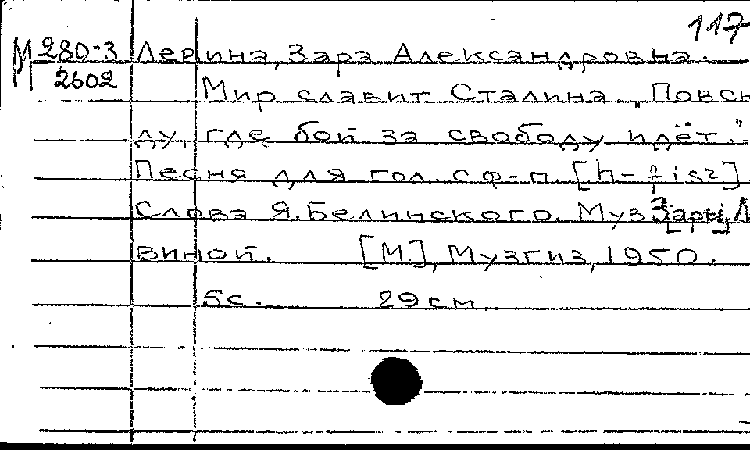 117
М 280-3 Левина, Зара Александровна.
2602
Мир славит Сталина. „Повсю
ду, где бой за свободу идёт."
Песня для гол. с ф-п. [h-fis2]
Слова Я. Белинского. Муз. З[ары] Л
виной. [М.], Музгиз, 1950.
5с. 29см.